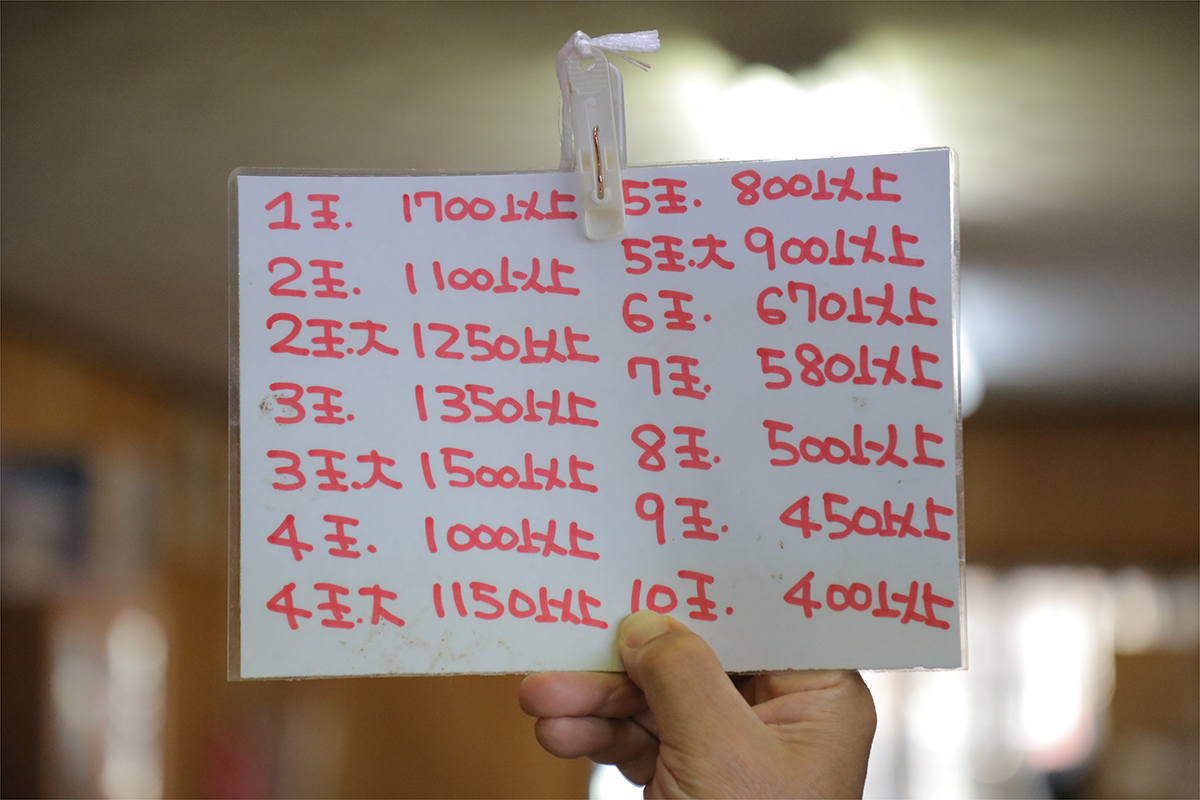 1玉 1700以上
2玉 1100以上
2玉大 1250以上
3玉 1350以上
3玉大 1500以上
4玉 1000以上
4玉大 1150以上
5玉 800以上
5玉大 900以上
6玉 670以上
7玉 580以上
8玉 500以上
9玉 450以上
10玉 400以上